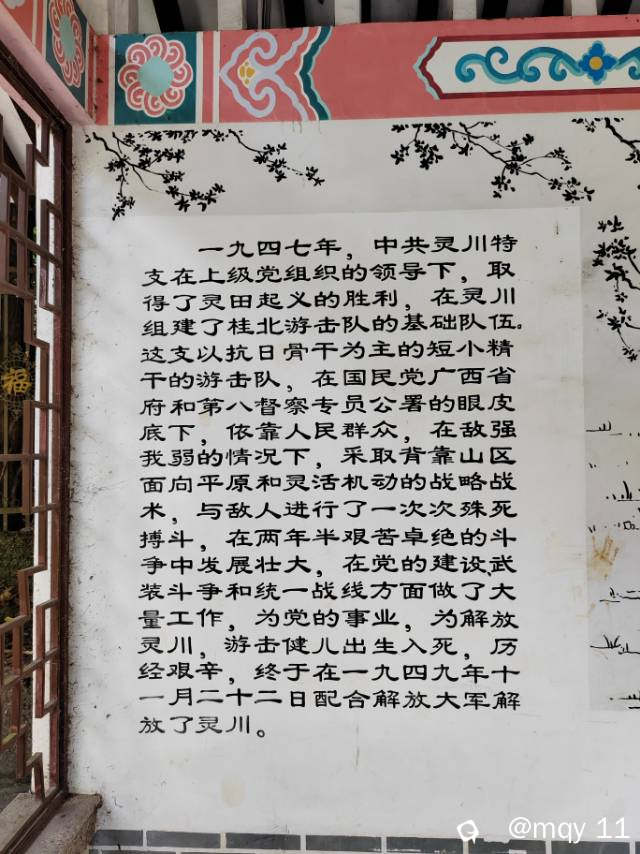 一九四七年，中共灵川特
支在上级党组织的领导下，取
得了灵田起义的胜利，在灵川
组建了桂北游击队的基础队伍。
这支以抗日骨干为主的短小精
干的游击队，在国民党广西省
府和第八督察专员公署的眼皮
底下，依靠人民群众，在敌强
我弱的情况下，采取背靠山区
面向平原和灵活机动的战略战
术，与敌人进行了一次次殊死
搏斗，在两年半艰苦卓绝的斗
争中发展壮大，在党的建设、武
装斗争和统一战线方面做了大
量工作，为党的事业，为解放
灵川，游击健儿出生入死，历
经艰辛，终于在一九四九年十
一月二十二日配合解放大军解
放了灵川。
福
@mqy 11